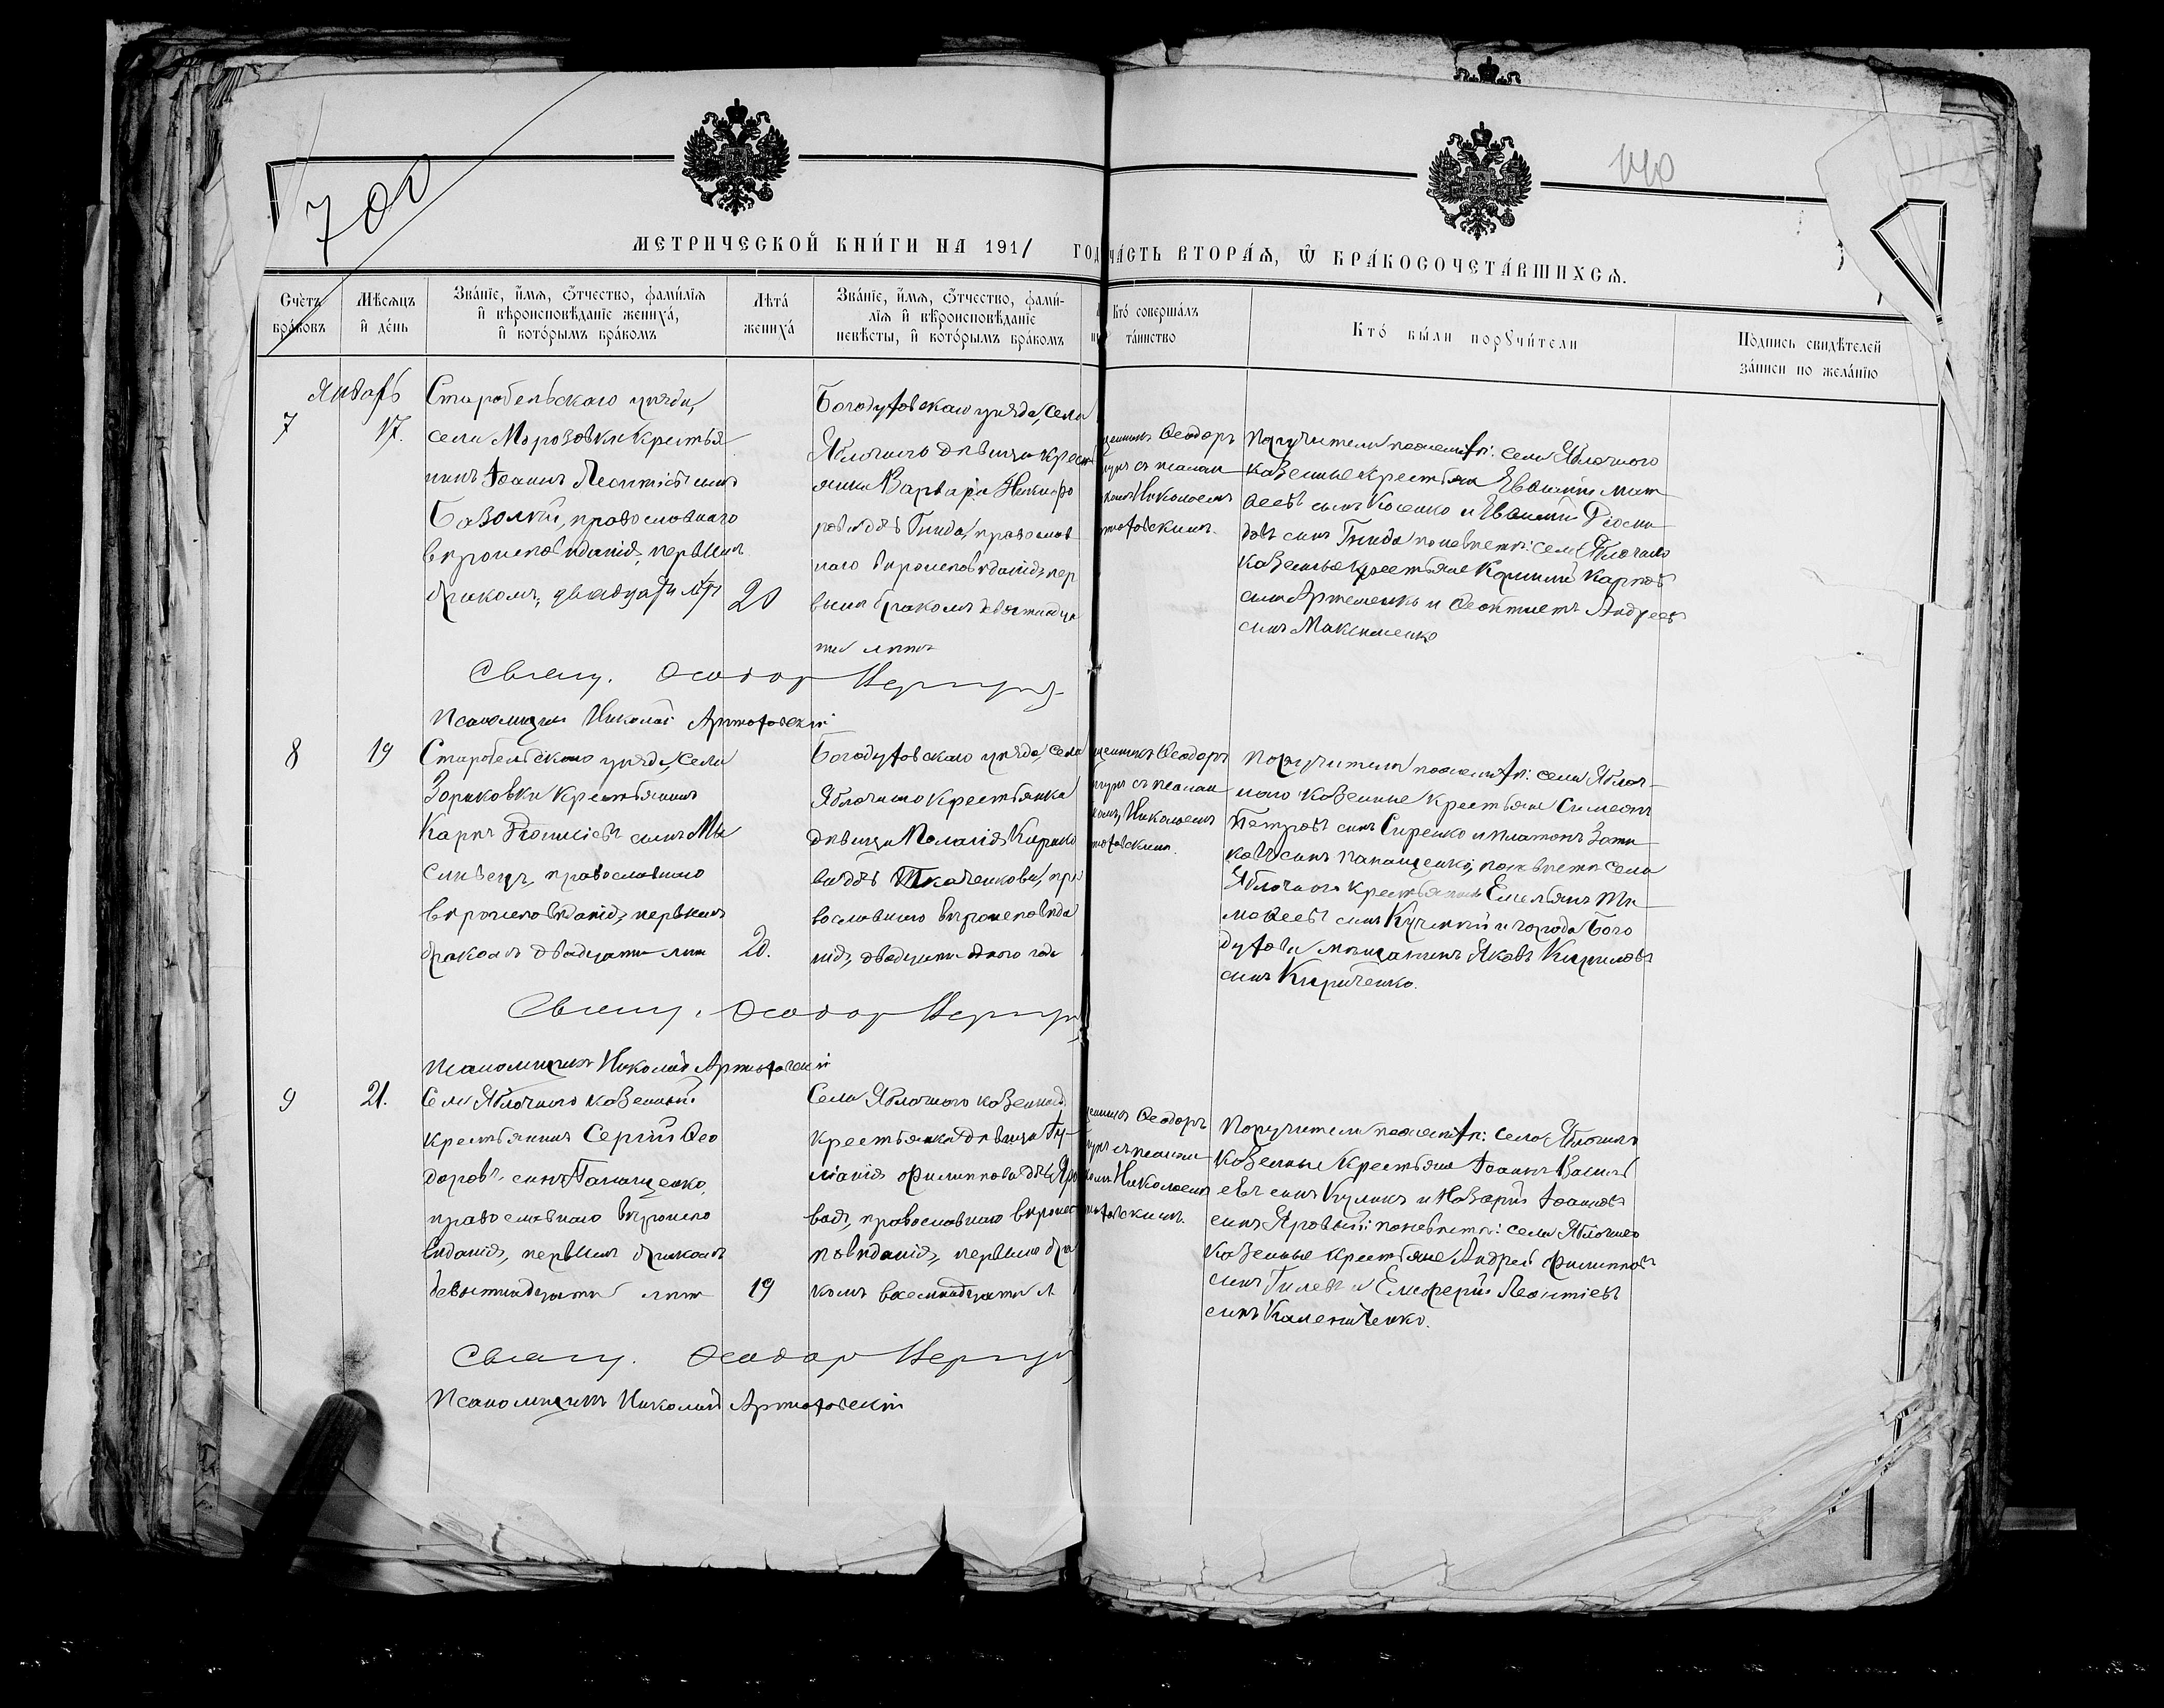 700
140
МЕТРИЧЕСКОЙ КНИ́ГИ НА 1911 ГОД ЧА́СТЬ ВТОРА́Ѧ, Ѿ БРА́КОСОЧЕТА́ВШИХСѦ.
Сче́тъ бра́ковъ
Мѣ́сѧцъ и҆ де́нь
Зва́нїе, и҆́мѧ, ѻ҆́тчество, фами́лїѧ
и҆ вѣроисповѣ́данїе жениха̀,
и҆ кото́рымъ бра́комъ
Лѣта̀ жениха̀
Зва́нїе, и҆́мѧ, ѻ҆́тчество, фами́-
лїѧ и҆ вѣроисповѣ́данїе
невѣ́сты, и҆ кото́рымъ бра́комъ
Кто̀ соверша́лъ
та́инство
Кто̀ бы́ли порꙋчи́тели
По́дпись свидѣ́телей
за́писи по жела́нїю
Январь
7
17.
Старобельскаго уѣзда,
села Морозовки крестья
нинъ Іоаннъ Леонтіевъ сынъ
Базолій, православнаго
вѣроисповѣданія, первымъ
бракомъ, двадцати лѣтъ
20
Богодуховскаго уѣзда, села
Яблочнаго дѣвица крест
янка Варвара Никифо
рова дочь Гнида, православ
наго вѣроисповѣданія, пер
вымъ бракомъ девятнадца
ти лѣтъ
щенникъ Ѳеодоръ
съ псалом
комъ Николаемъ
тюховскимъ.
Поручители по женихѣ: села Яблочного
казенные крестьяне Евѳимій Мат
ѳеевъ сынъ Косенко и Евѳимій Діоми
довъ сынъ Гнида по невѣстѣ: села Яблочнаго
казенные крестьяне Корнилій Карповъ
сынъ Артеменко и Ѳеоктистъ Андреевъ
сынъ Максименко
Свящ. Ѳеодоръ
Псаломщикъ Николай Артюховскій
8
19
Старобельскаго уѣзда, села
Зориковки крестьянинъ
Карпъ сынъ Мы
синвецъ, православнаго
вѣроисповѣданія, первымъ
бракомъ двадцати лѣтъ
20.
Богодуховскаго уѣзда, села
Яблочнаго крестьянка
дѣвица Меланія Кирило
ва дочь Ткаченкова, пра
вославнаго вѣроисповѣда
нія, двадцати одного года
щенникъ Ѳеодоръ
съ псалом
комъ Николаемъ
тюховскимъ.
Поручители по женихѣ: села Яблоч-
наго казенные крестьяне Симеонъ
Петровъ сынъ Сиренко и Платонъ
сынъ Панащенко; по невѣстѣ села
Яблочнаго крестьянинъ Емельянъ Ти
моѳеевъ сынъ и города Бого
духова мѣщанинъ Яковъ Кириловъ
сынъ Кириченко.
Свящ. Ѳеодоръ
Псаломщикъ Николай Артюховскій
9
21.
Села Яблочнаго казенный
крестьянинъ Сергій Ѳео
доровъ сынъ Панащенко,
православнаго вѣроиспо
вѣданія, первымъ бракомъ
девятнадцати лѣтъ
19
Села Яблочнаго казенная
крестьянка дѣвица Іу-
ліанія Филиппова дочь Яро
вая, православнаго вѣроис
повѣданія, первымъ бра
комъ восемнадцати л
щенникъ Ѳеодоръ
съ псалом
комъ Николаемъ
тюховскимъ.
Поручители по женихѣ: села Яблочнаго
казенные крестьяне Іоаннъ Василь
евъ сынъ Куликъ и Назарій Іоанновъ
сынъ Яровый: по невѣстѣ: села Яблочнаго
казенные крестьяне Андрей Филипповъ
сынъ Гилевъ и Елеѵѳерій Леонтіевъ
сынъ Каленіченко.
Свящ. Ѳеодоръ
Псаломщикъ Николай Артюховскій